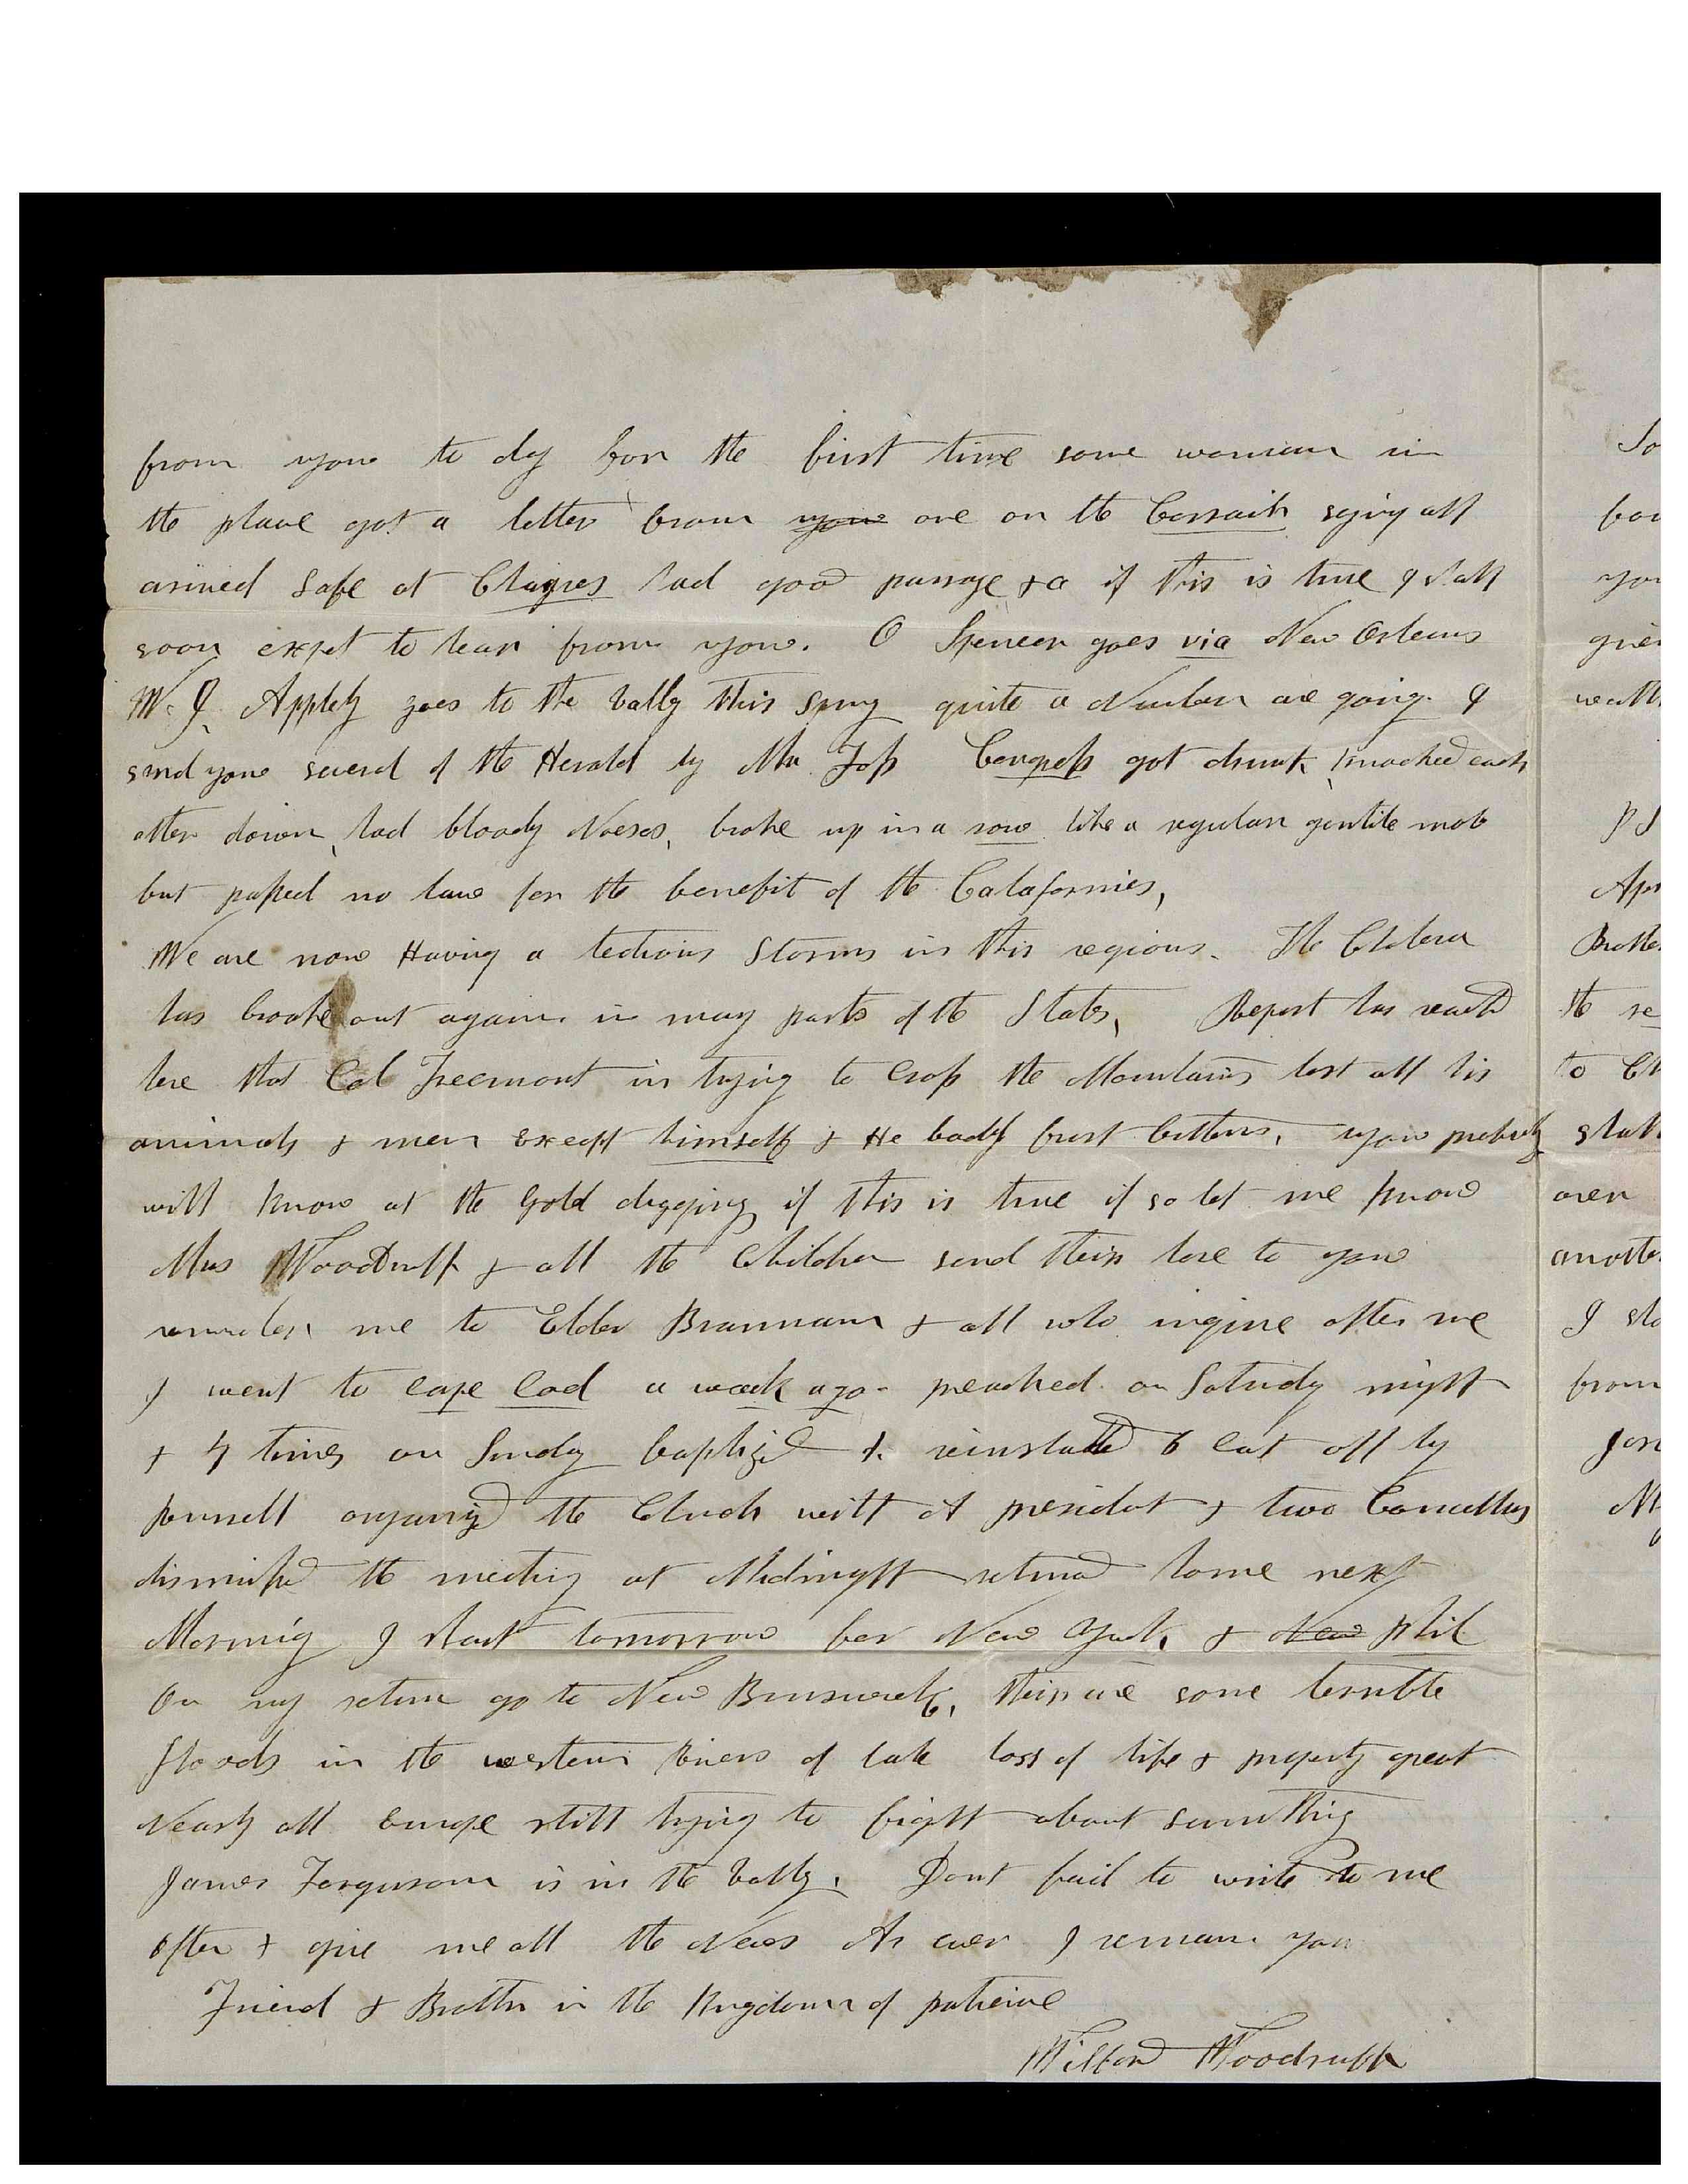 from you to day for the first time some woman in
the place got a letter from you one on the Corsair saying all
arived safe at Chagres had good passage &c if this is true I shall
soon expet to hear from you. O Spencer goes via New Orleans
W. I. Appleby goes to the vally this spring quite a Number are going. I
send you several of the Herald by Mr Foss Congress got drunk, knocked each
other down, had bloody Noses, broke up in a row like a regular gentile mob
but passed no law for the benefit of the Califormies,
We are now Having a tedious Storms in this regions. The Cholera
has broake out again in many parts of the States, Report has reachd
here that Col Freemont in trying to Cross the Mountains lost all his
animals & men except himself & He badly frost bitten, you probably
will know at the Gold digging if this is true if so let me know
Mrs Woodruff & all the Children send their love to you
remember me to Elder Brannan & all who inqire after me
I went to Cape Cod a week ago preached on Saturdy night
& 4 times on Sunday baptized 1. reinstated 6 Cut off by
organized the Church with A presidet & two Councellors
dismissed the meeting at Midnight returnd home next
Morning I start tomorrow for New York, & New Phil
On my return go to New Brunswick, their are some terrible
floods in the western Rivers of late loss of life & property great
Nearly all Europe still trying to fight about sumthing
James Ferguson is in the vally. Dont fail to write to me
often & give me all the News As ever I remain you
Friend & Brother in the Kingdom of patience
Wilford Woodruff